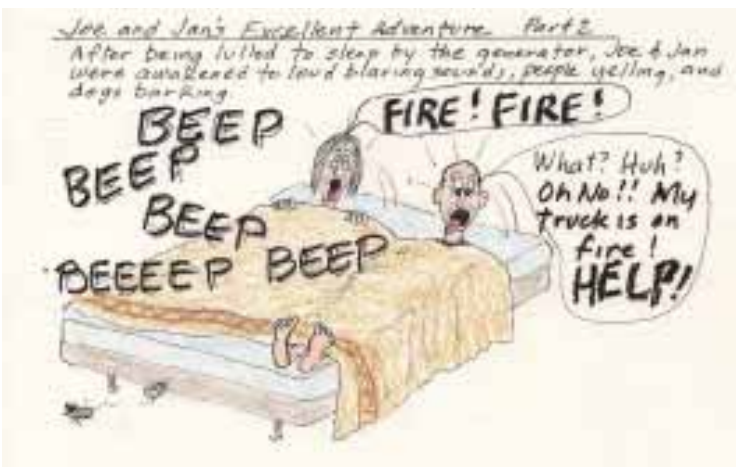 Joe and Jan's Excellent Adventure Part 2
After being lulled to sleep by the generator, Joe & Jan
were awakened to loud blaring sounds, people yelling, and
dogs barking.
BEEP
FIRE! FIRE!
BEEP
BEEP
BEEEEP BEEP
What? Huh?
Oh No!! My
truck is on
fire!
HELP!